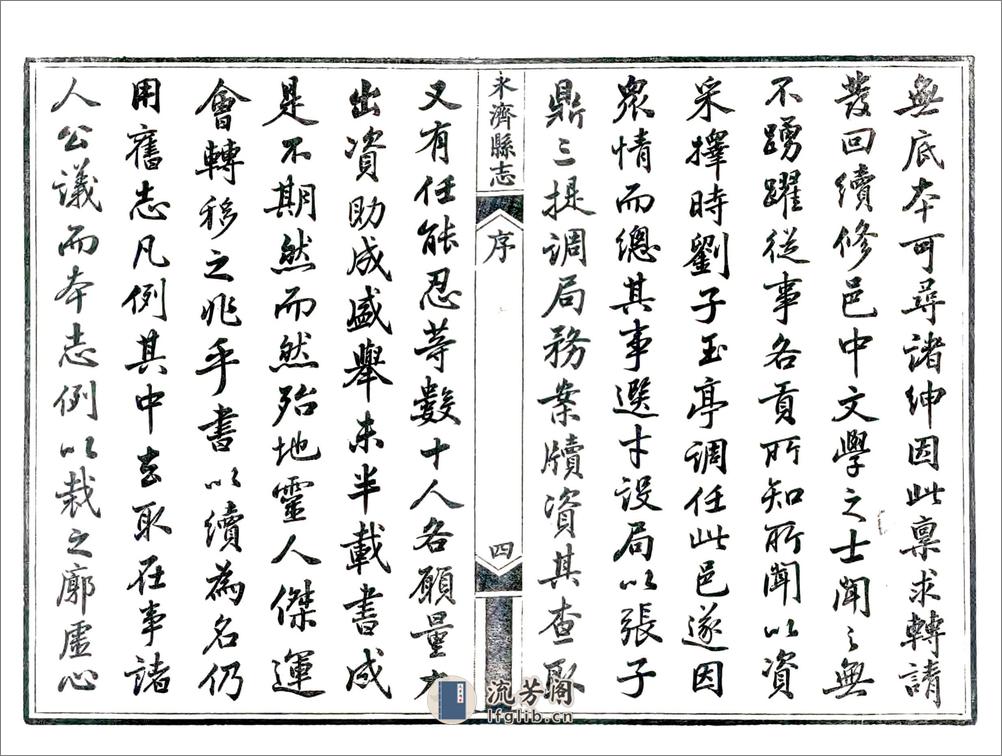 無底本可尋諸紳因此稟求轉請
發回續修邑中文學之士聞之無
不踴躍從事各貢所知所聞以資
采擇時劉子玉亭調任此邑遂因
眾情而總其事選才設局以張子
鼎三提調局務案牘資其查
永濟縣志
序
四
又有任能忍等數十人各願量力
出資助成盛舉未半載書成
是不期然而然殆地靈人傑運
會轉移之兆乎書以續為名仍
用舊志凡例其中去取在事諸
人公議而本志例以裁之廓虛心
流芳閣
lfglib.cn